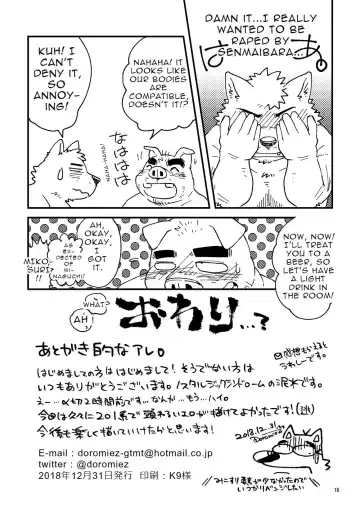 DAMN IT...I REALLY
WANTED TO BE
RAPED BY
SENMAIBARA...
はあ。
NAHAHA! IT
LOOKS LIKE
OUR BODIES
ARE
COMPATIBLE,
DOESN'T IT?
KUH! I
CAN'T
DENY IT,
SO
ANNOY-
ING!
NAHA-HAHA!
なははは
NOW, NOW!
I'LL TREAT
YOU TO A
BEER, SO
LET'S HAVE A
LIGHT
DRINK IN
THE ROOM!
AH,
OKAY,
OKAY, I
GOT IT.
AS EX-
PECTED
OF
MI-
NAGUCHI!
MIKO-
SURI
!!
WHAT?
AH!
おわり...?
あとがき的なアレ。
はじめましての方ははじめまして!そうでない方は
いつもありがとうございます。ノスタルジックシンドロームの泥水です。
えー…〆切2時間前です…なんか…もう…ハイ。
今後も楽しく描いていけたらと思います!
感想もらえると
うれしーです。
2018.12.31
doromiez
E-mail : doromiez-gtmt@hotmail.co.jp
twitter : @doromiez
2018年12月31日発行　印刷：K9様
みこすり要素が少なかったので
いつかリベンジしたい
15